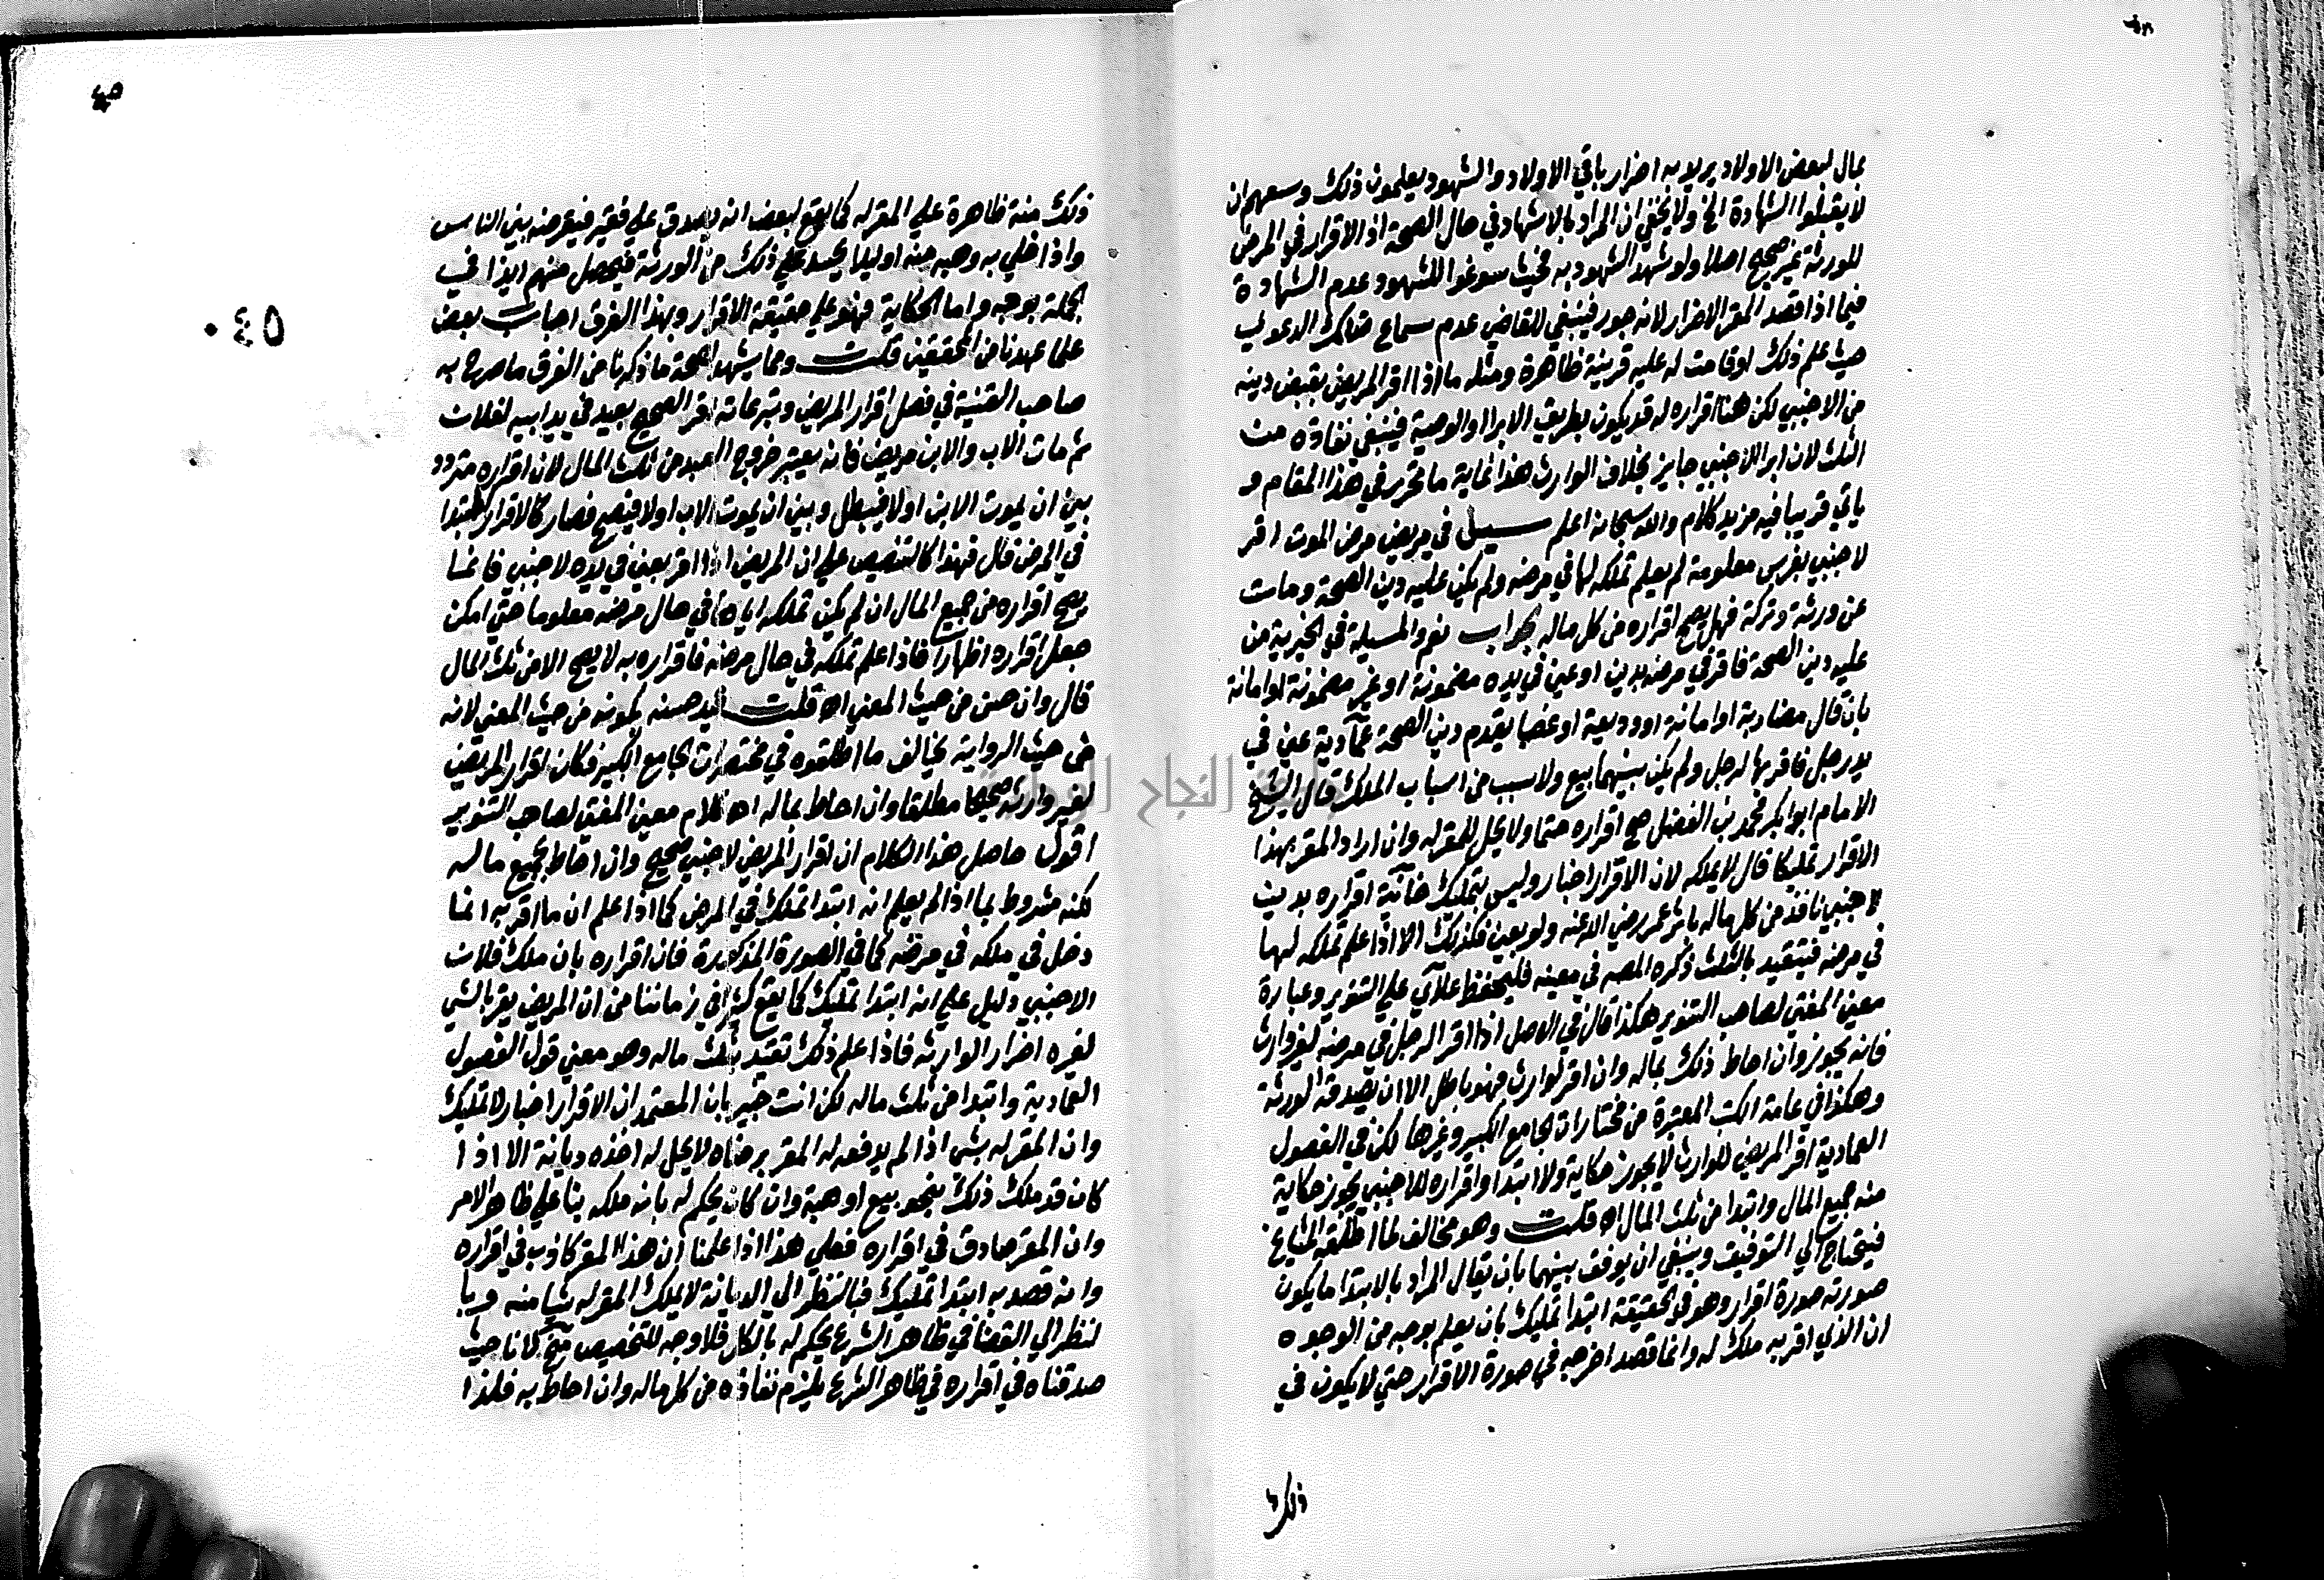 بمال لبعض الاولاد يريد به اضرار باقي الاولاد والشهود يعلمون ذلك وسعهم ان
لا يقبلوا الشهادة الخ ولا يخفي ان المراد بالاشهاد في حال الصحة اذ الاقرار في المرض
للورثة غير صحيح اصلا ولو شهد الشهود به فحيث سوغوا للشهود عدم الشهادة
فيما اذا قصد المقر الاضرار لانه جور فينبغي للقاضي عدم سماع تلك الدعوي
حيث علم ذلك اوقامت له عليه قرينة ظاهرة ومثله ما اذا اقر المريض بقبض دينه
من الاجنبي لكن هنا اقراره له قد يكون بطريق الابرا او الوصية فينبغي نفاذه من
الثلث لان ابرا الاجنبي جايز بخلاف الوارث هذا غاية ما تحرر في هذا المقام و
ياتي قريبا فيه مزيد كلام والله سبحانه اعلم سيل في مريض مرض الموت اقر
لاجنبي بفرس معلومة لم يعلم تملكه لها في مرضه ولم يكن عليه دين الصحة ومات
عن ورثة وتركة فهل يصح اقراره من كل ماله بجواب نعم والمسيلة في الخيرية من
عليه دين الصحة فاقر في مرضه بدين او عين في يده مضمونة او غير مضمونة او امانة
بان قال مضاربة او امانة او وديعة او غصبا يقدم دين الصحة عمادية عين في
يد رجل فاقر بها لرجل ولم يكن بينهما بيع ولا سبب من اسباب الملك قال الشيخ
الامام ابو بكر محمد بن الفضل صح اقراره حتما ولا يحل للمقر له وان اراد المقر بهذا
الاقرار تمليكا قال لا يملكه لان الاقرار اخبار وليس بتمليك خانية اقراره بدين
لاجنبي نافذ من كل ماله باثر عمر رضي الله عنه ولو بعين فكذلك الا اذا علم تملكه لها
في مرضه فيتقيد بالثلث ذكره المصه في معينه فليحفظ علآي علي التنوير وعبارة
معين المفتي لصاحب التنوير هكذا قال في الاصل اذا اقر الرجل في مرضه لغير وارث
فانه يجوز وان احاط ذلك بماله وان اقر لوارث فهو باطل الا ان يصدقه الورثة
وهكذا في عامة الكتب المعتبرة من مختارات الجامع الكبير وغيرها لكن في الفصول
العمادية اقر المريض للوارث لا يجوز حكاية ولا ابتدا واقراره للاجنبي يجوز حكاية
منه جميع المال وابتدا من ثلث المال اه قلت وهو مخالف لما اطلقه المشايخ
فيحتاج الي التوفيق وينبغي ان يوفق بينهما بان يقال المراد بالابتدا ما يكون
صورته صورة اقرار وهو في الحقيقة ابتدا تمليك بان يعلم بوجه من الوجوه
ان الذي اقر به ملك له وانما قصد اخرجه في صورة الاقرار حتي لا يكون في
ذلك
ذلك منة ظاهرة علي المقر له كما يقع لبعض انه يتصدق علي فقير فيقرضه بين الناس
واذا خلي به وهبه منه او ليلا يحسد علي ذلك من الورثة فيحصل منهم ايذا في
الجملة بوجه واما الحكاية فهو علي حقيقة الاقرار وبهذا الفرق اجاب بعض
علما عهدنا من المحققين قلت ومما يشهد لصحة ما ذكرنا من الفرق ما صرح به
صاحب القنية في فصل اقرار المريض وتبرعاته اقر الصحيح بعبد في يد ابيه لفلان
ثم مات الاب والابن مريض فانه يعتبر خروج العبد من ثلث المال لان اقراره متردد
بين ان يموت الابن اولا فيبطل وبين ان يموت الاب اولا فيصح فصار كالاقرار المبتدا
في المرض قال فهذا كالتنصيص علي ان المريض اذا اقر بعين في يده لاجنبي فانما
يصح اقراره من جميع المال ان لم يكن تملكه اياه في حال مرضه معلوما حتي امكن
جعل اقراره اظهارا فاذا علم تملكه في حال مرضه فاقراره به لا يصح الا من ثلث المال
قال وان حسن من حيث المعني اه قلت قيد حسنه بكونه من حيث المعني لانه
من حيث الرواية يخالف ما اطلقوه في مختصرات الجامع الكبير فكان اقرار المريض
لغير وارث صحيحا مطلقا وان احاط بماله اه كلام معين المفتي لصاحب التنوير
اقول حاصل هذا الكلام ان اقرار المريض لاجنبي صحيح وان احاط بجميع ماله
لكنه مشروط بما اذا لم يعلم انه ابتدا تمليك في المرض كما اذا علم ان ما اقر به انما
دخل في ملكه في مرضه كما في الصورة المذكورة فان اقراره بان ملك فلان
الاجنبي دليل علي انه ابتدا تمليك كما يقع كثيرا في زماننا من ان المريض يقر بالشي
لغيره اضرارا لوارثه فاذا علم ذلك تقيد بثلث ماله وهو معني قول الفصول
العمادية وابتدا من ثلث ماله لكن انت خبير بان المعتمد ان الاقرار اخبار لا تمليك
وان المقر له بشي اذا لم يدفعه له المقر برضاه لا يحل له اخذه ديانة الا اذا
كان قد ملك ذلك بنحو بيع او هبة وان كان يحكم له بانه ملكه بنا علي ظاهر الامر
وان المقر صادق في اقراره فعلي هذا اذا علمنا ان هذا المقر كاذب في اقراره
وانه قصد به ابتدا تمليك فبالنظر الي الديانة لا يملك المقر له شيا منه وبا
لنظر الي القضا في ظاهر الشرع يحكم له بالكل فلا وجه للتخصيص لانا حيث
صدقناه في اقراره في ظاهر الشرع يلزم نفاذه من كل ماله وان احاط به فلذا
٤٥٠